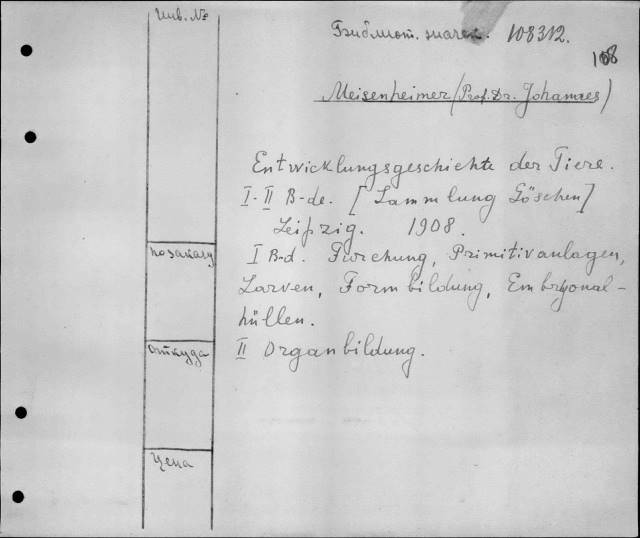 Инв. №
Библиот. значен. 108312.
108
Meisenheimer (Prof. Dr. Johannes)
Entwicklungsgeschichte der Tiere.
I-II B-de. [Sammlung Göschen]
Leipzig. 1908.
по заказу
I B-d. Furchung, Primitivanlagen,
Larven, Formbildung, Embryonal-
hüllen.
Откуда
II Organbildung.
Цена